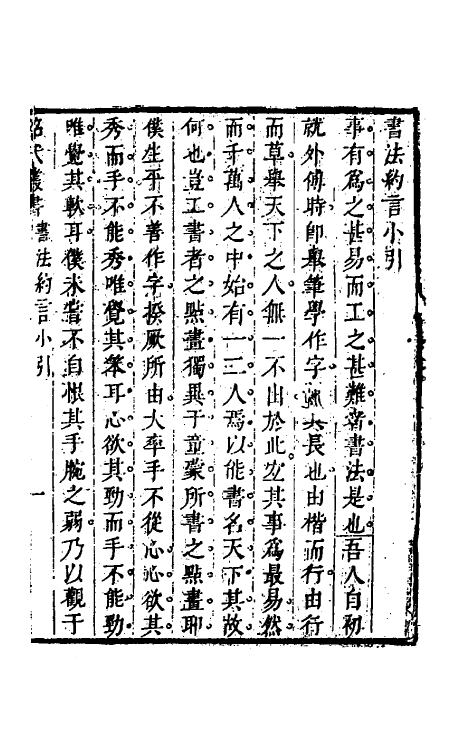 書法約言小引
事有爲之甚易而工之甚難者書法是也吾人自初
就外傅時卽舉筆學作字迨其長也由楷而行由行
而草舉天下之人無一不出於此宜其事爲最易然
而千萬人之中始有一二人焉以能書名天下其故
何也豈工書者之點畫獨異于童蒙所書之點畫耶
僕生平不善作字揆厥所由大率手不從心心欲其
秀而手不能秀唯覺其笨耳心欲其勁而手不能勁
唯覺其軟耳僕未嘗不自恨其手腕之弱乃以觀于
昭代叢書 書法約言小引 一